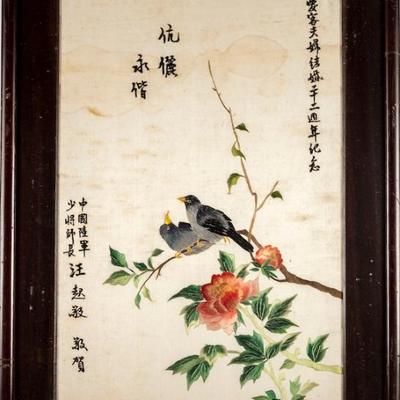 安客夫婦結婚二十二週年紀念
伉儷
永偕
中國陸軍
少將師長 汪起敬 敬賀